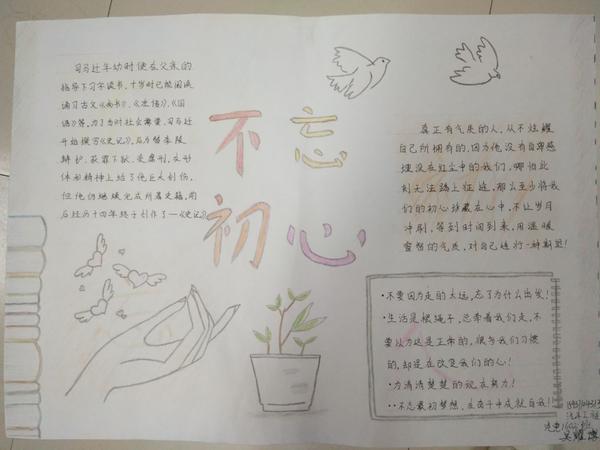 司马迁年幼时便在父亲的
指导下习字读书,十岁时已能阅读
诵习古文《尚书》、《左传》、《国
语》等,为了当时社会需要,司马迁
开始撰写《史记》,后为替李陵
辩护,获罪下狱,受腐刑,在形
体和精神上给了他巨大创伤,
但他仍继续完成所著史籍,前
后经历十四年终于创作了《史记》
不忘
初心
真正有气质的人,从不炫耀
自己所拥有的,因为他没有自卑感
埋没在红尘中的我们,哪怕此
刻无法踏上征途,那么至少将我
们的初心珍藏在心中,不让岁月
冲刷,等到时间到来,用温暖
的气质,对自己进行一种斯
·不要因为走的太远,忘了为什么出发!
·生活是根绳子,总牵着我们走,不
要以为这是正常的,很多我们习惯
的,却是在改变我们的心!
·为清清楚楚的现在努力!
··不忘最初梦想,在奋斗中成就自我!